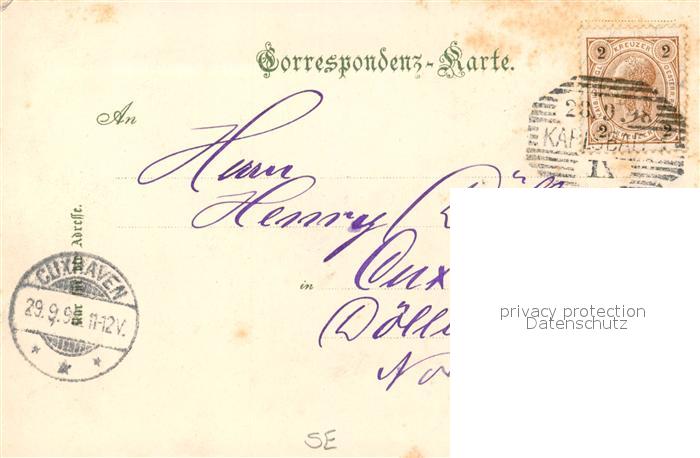 Correspondenz-Karte.
2 KREUZER 2
2 2
28.9.98
KARLSBAD
IX
An
Herrn
Henry
in Cux
Dölle
No
Nur für die Adresse.
CUXHAVEN
29.9.98 11-12V.
* * *
privacy protection
Datenschutz
SE